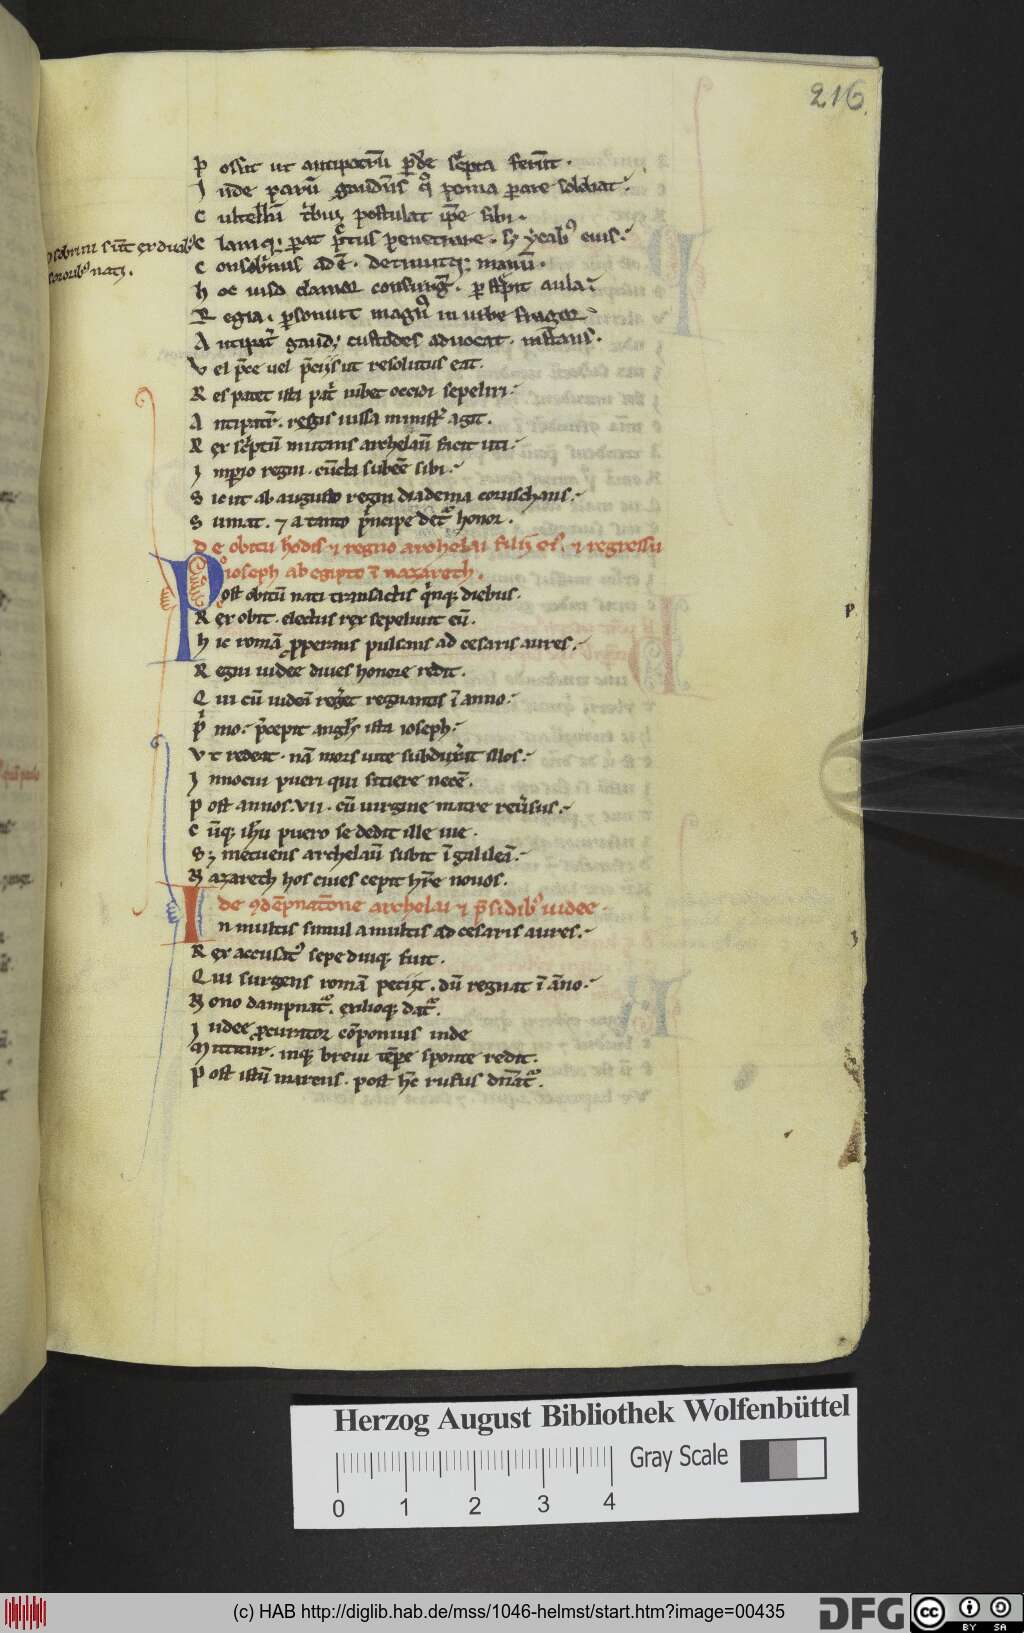 216
P ossit ut antipatrū ꝑde scͥpta ferūt.
I ūde parū gaudēs qͥ poma parare solebat.
C ultellū tͥbui postulat ipͣe sibi.
C lamqꝫ parat pͥus penetrare. sꝫ ycabꝰ eius.
C onsobͥnus adē. detinuitqꝫ manū.
consobrini sūt ex duabꝰ
sororibꝰ nati.
h oc uiso clamor consurgͥt. ꝑstͥpit aula.
R egia. ꝑsonuit magnꝰ in urbe fragor
A ntipatͥ gaudꝫ custodes aduocat. instans.
V el pͥce uel pͥcijs ut resolutus eat.
R es patet ista patͥ iubet occidi sepeliri.
A ntipatͥ. regis iussa ministͥ agit.
R ex scͥptū mutans archelaū facit uti.
I mꝑio regni. cūcta subeē sibi.
S ic ut ab augusto regni diadema coruschans.
S umat. ⁊ a tanto pͥncipe detͥ honor.
de obitu hodis ⁊ regno archelai filij eiꝰ. ⁊ regressu
ioseph ab egipto ī nazareth.
Post obitū nati transactis qͥnqꝫ diebus.
R ex obit. electus rex sepeliuit eū.
h ic romā ꝓperans pulsans ad cesaris aures.
R egni iudee diues honore redit.
Q ui cū iudeā regͥet regnantis ī anno.
Pͥ mo. pͥcepit anglͥs ista ioseph.
V t redeat. nā mors uite subduxͥt illos.
I nnocui pueri qui sitiere necē.
P ost annos. VII. cū uirgine matre reuͥsus.
C ūqꝫ ihū puero se dedit ille uie.
S ꝫ metuens archelaū subit ī galileā.
N azareth hos ciues cepit hͥe nouos.
de ꝯdēpnatōne archelai ⁊ pͥsidibꝰ iudee.
In multis simul a multis ad cesaris aures.
R ex accusatꝰ sepe diuqꝫ fuit.
Q ui surgens romā petijt. dū regnat ī āno.
N ono dampnatͥ. exilioqꝫ datͥ.
I udee ꝓcurator cōponius inde
Mittitur. inqꝫ breui tēpe sponte redit.
P ost istū marcus. post hͨ rufus dn̄atͥ.
p
Herzog August Bibliothek Wolfenbüttel
0 1 2 3 4
Gray Scale
(c) HAB http://diglib.hab.de/mss/1046-helmst/start.htm?image=00435
DFG
cc BY SA